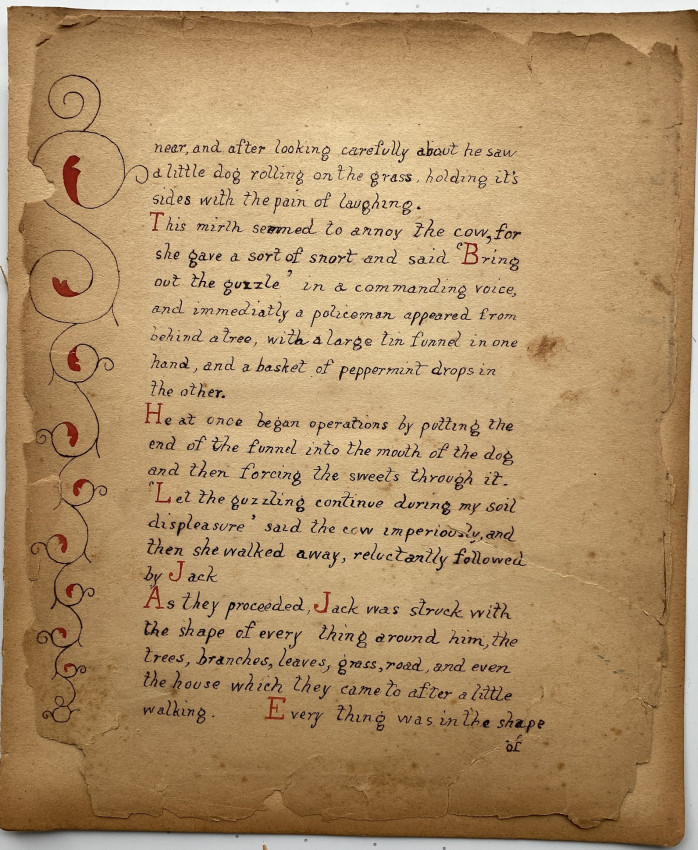 near, and after looking carefully about he saw
a little dog rolling on the grass, holding it's
sides with the pain of laughing.
This mirth seemed to annoy the cow, for
she gave a sort of snort and said 'Bring
out the guzzle' in a commanding voice,
and immediatly a policeman appeared from
behind a tree, with a large tin funnel in one
hand, and a basket of peppermint drops in
the other.
He at once began operations by putting the
end of the funnel into the mouth of the dog
and then forcing the sweets through it.
'Let the guzzling continue during my soil
displeasure' said the cow imperiously, and
then she walked away, reluctantly followed
by Jack
As they proceeded, Jack was struck with
the shape of every thing around him, the
trees, branches, leaves, grass, road, and even
the house which they came to after a little
walking. Every thing was in the shape
of